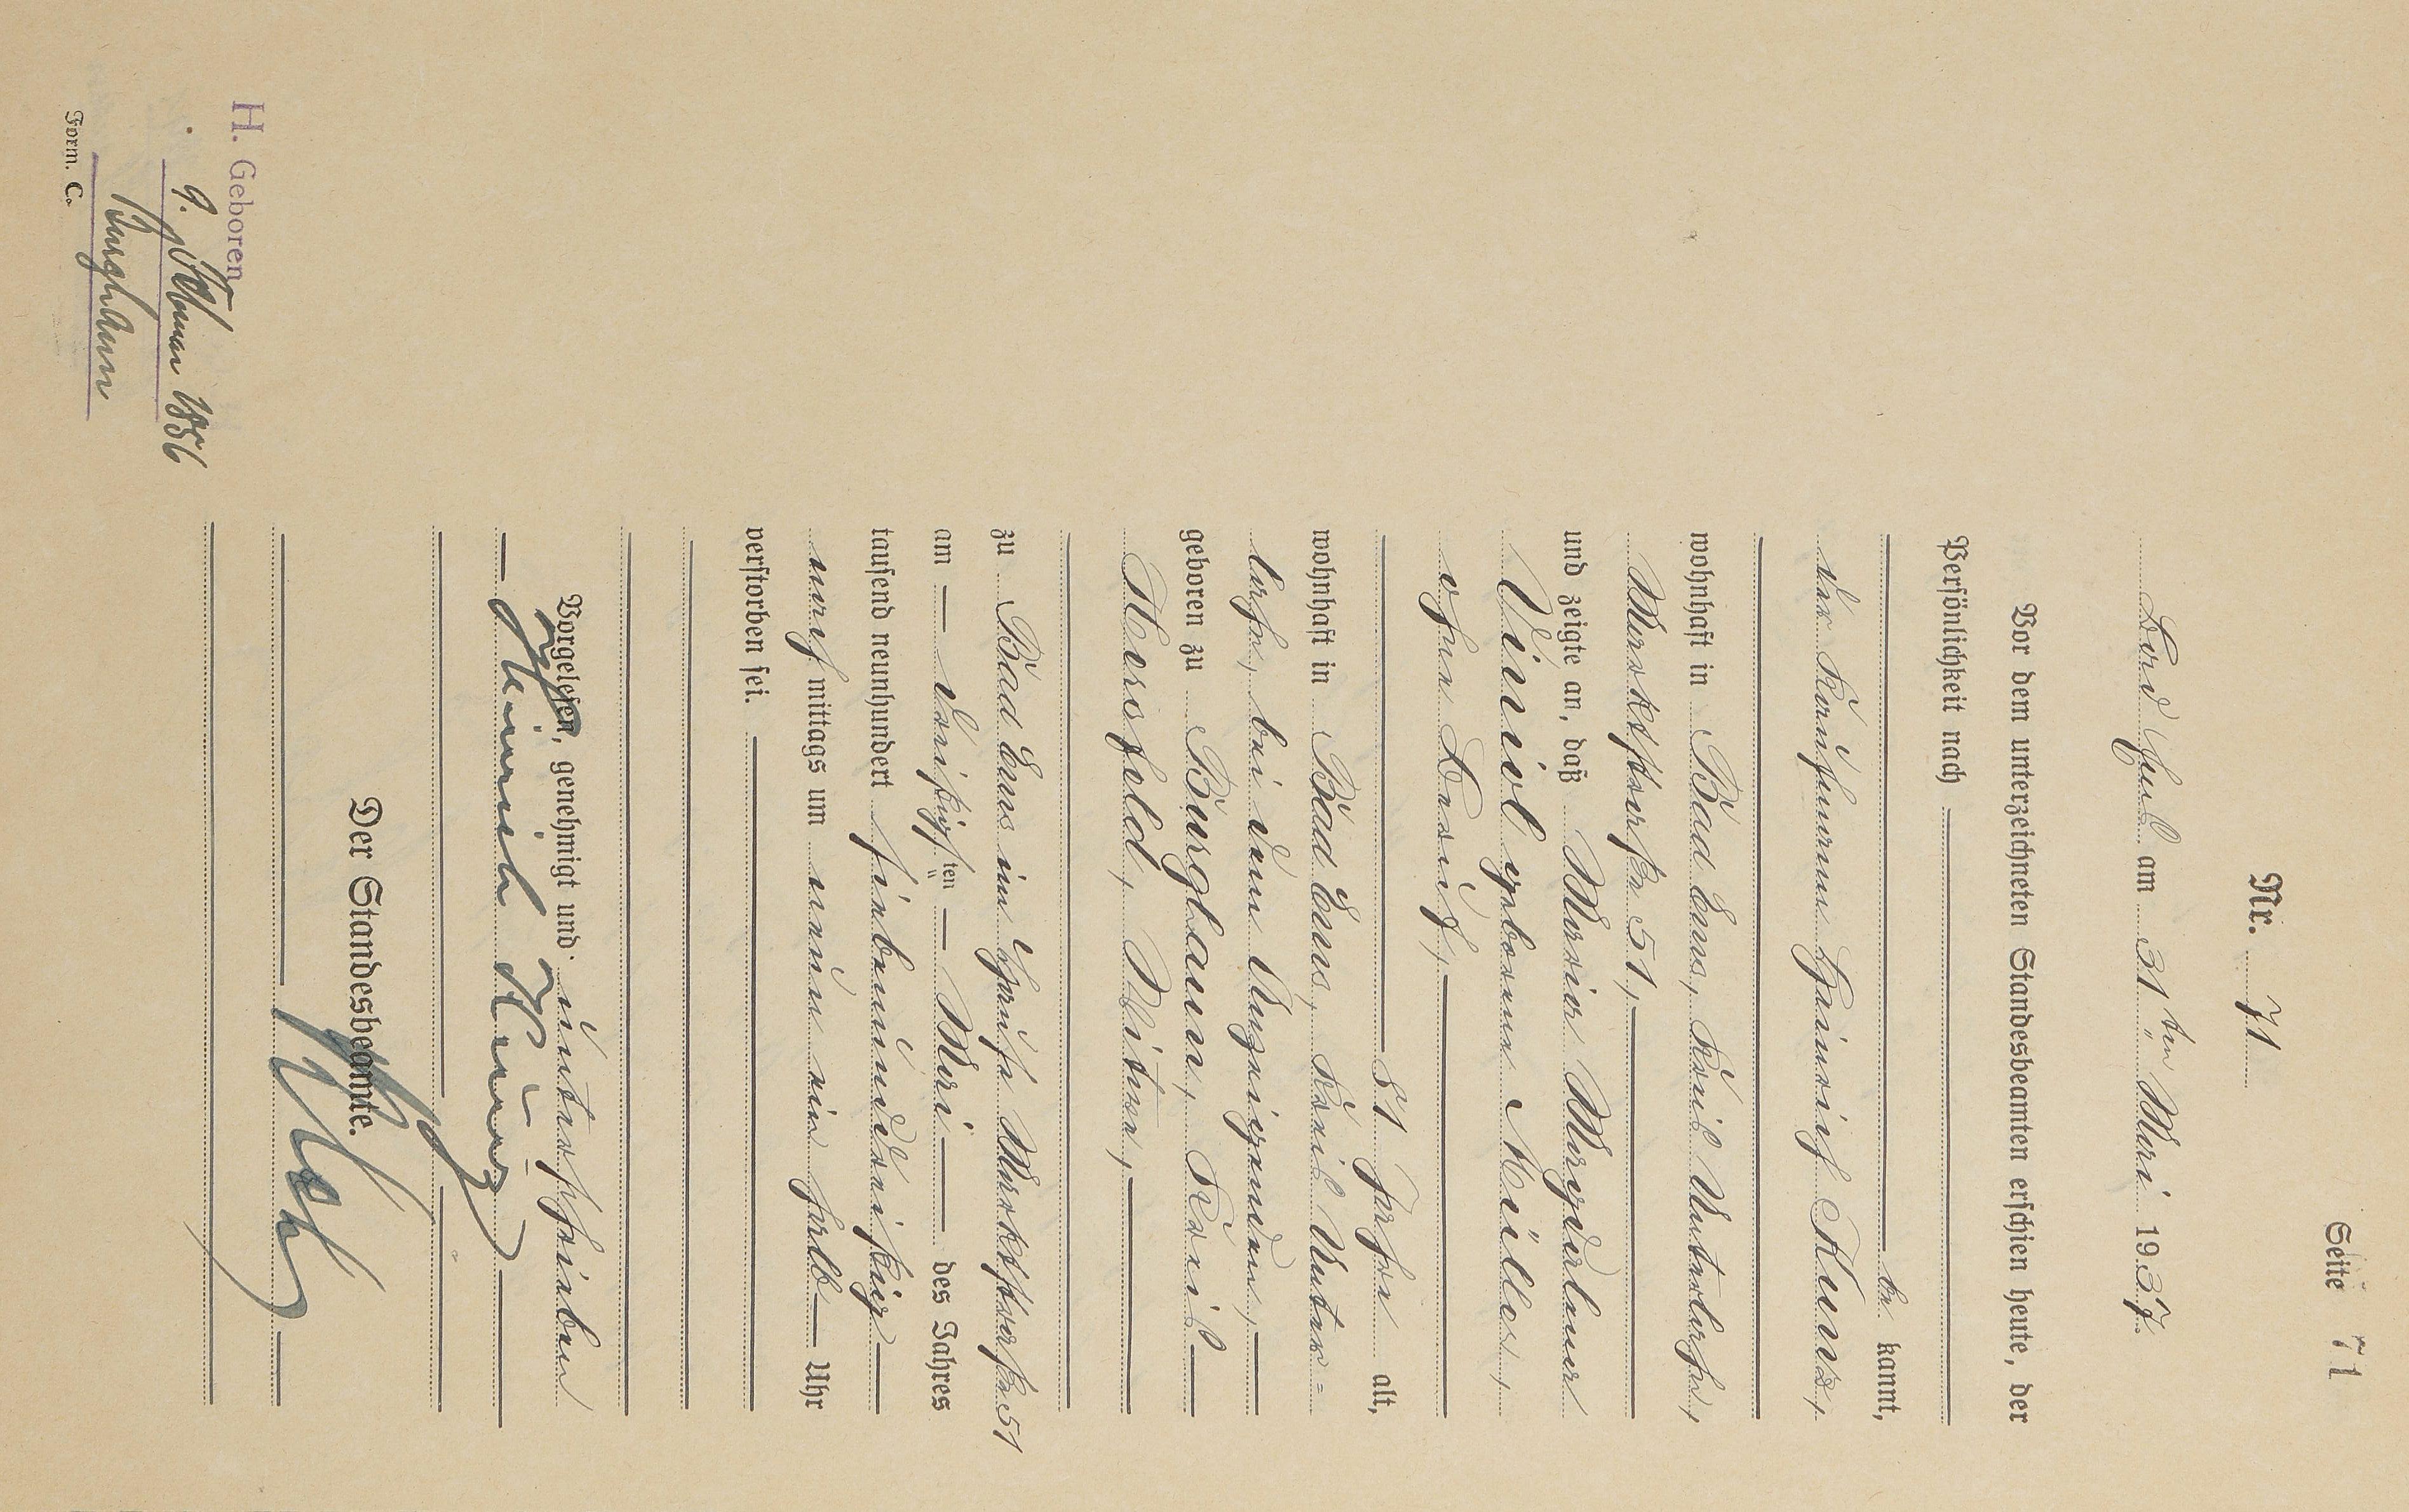 Seite 71
Nr. 71
Bad Ems am 31ten Mai 1937.
Vor dem unterzeichneten Standesbeamten erschien heute, der
Persönlichkeit nach
be kannt,
der Kaufmann Heinrich Kunz,
wohnhaft in Bad Ems, Kreis Unterlahn,
Marktstraße 51,
und zeigte an, daß Maria Magdalena
Viniol geborene Müller,
ohne Beruf,
81 Jahre alt,
wohnhaft in Bad Ems, Kreis Unter=
lahn, bei dem Anzeigenden,
geboren zu Burghaun, Kreis
Hersfeld, Witwe,
zu Bad Ems im Hause Marktstraße 51
am dreißigsten Mai des Jahres
tausend neunhundert siebenunddreißig
nach mittags um neun ein halb Uhr
verstorben sei.
Vorgelesen, genehmigt und unterschrieben
Heinrich Kunz
Der Standesbeamte.
H. Geboren
9. Februar 1856
Burghaun
Form. C.